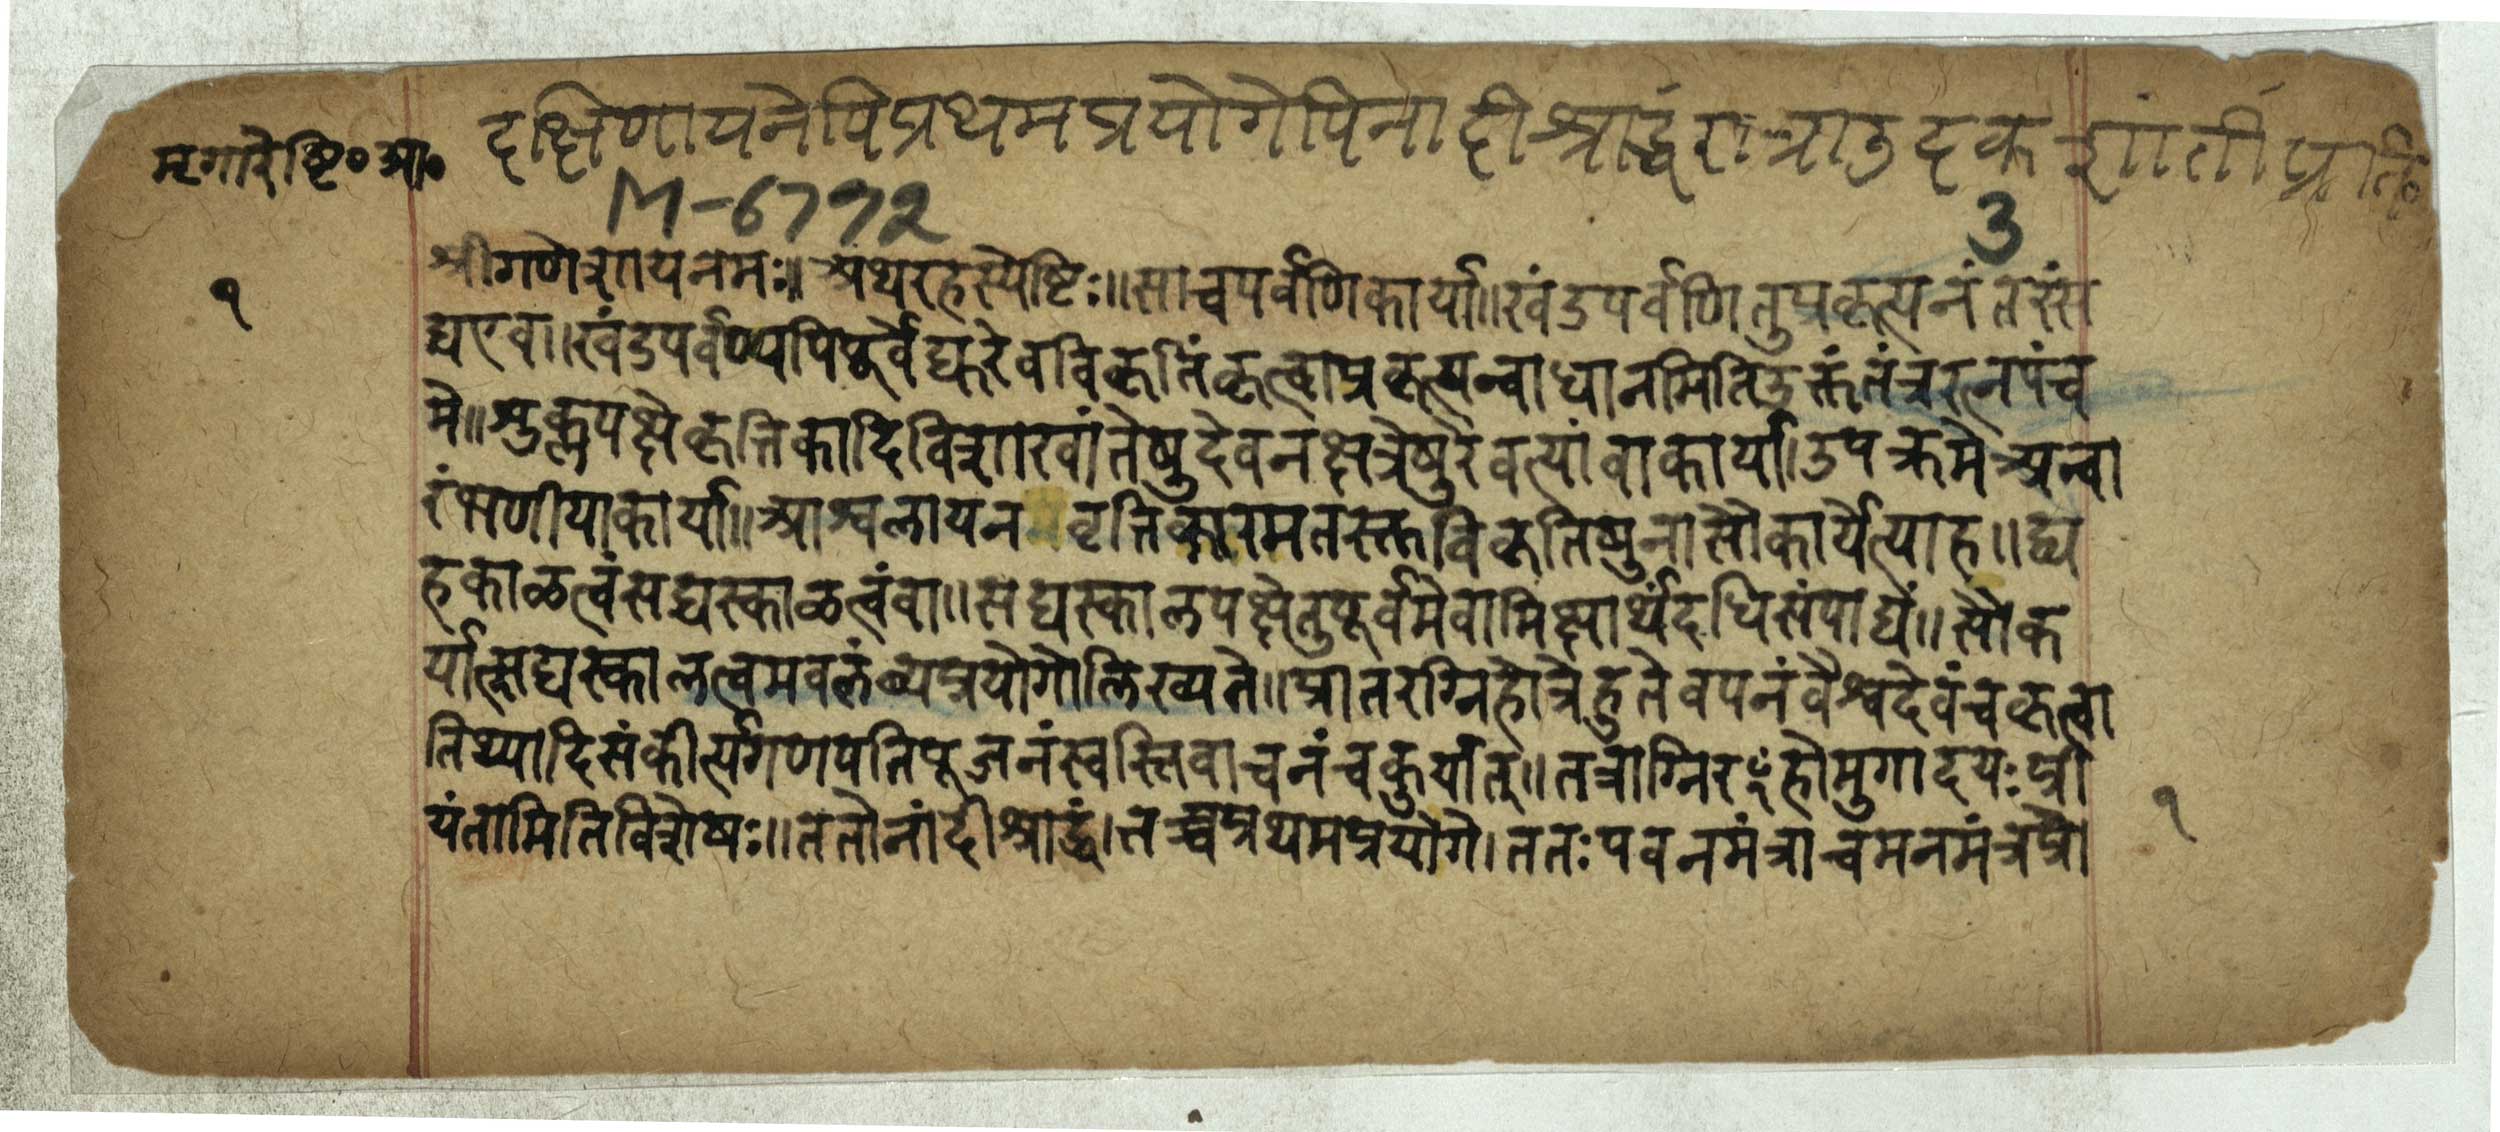 दक्षिणायनेपिप्रथमप्रयोगेपिनांदीश्राद्धंरात्राउदकशांतीप्रति॰
मृगारेष्टि॰आ॰
M-6772
3
१
श्रीगणेशायनमः॥अथरहस्येष्टिः॥साचपर्वणिकार्या॥खंडपर्वणितुप्रकृत्यनंतरंस
द्यएव॥खंडपर्वण्यपिपूर्वेद्युरेवविकृतिंकृत्वाप्रकृत्यन्वाधानमितिउक्तंतंत्ररत्नपंच
मे॥शुक्लपक्षेकृत्तिकादिविशाखांतेषुदेवनक्षत्रेषुरेवत्यांवाकार्या।उपक्रमेअन्वा
रंभणीयाकार्या॥आश्वलायनवृत्तिकारमतस्तुविकृतिषुनासौकार्येत्याह॥द्व्य
हकाळत्वंसद्यस्काळत्वंवा॥सद्यस्कालपक्षेतुपूर्वमेवामिक्षार्थंदधिसंपाद्यं॥सौक
र्यात्सद्यस्कालत्वमवलंब्यप्रयोगोलिख्यते॥प्रातरग्निहोत्रेहुतेवपनंवैश्वदेवंचकृत्वा
तिथ्यादिसंकीर्त्यगणपतिपूजनंस्वस्तिवाचनंचकुर्यात्॥तत्राग्निरꣳहोमुगादयःप्री
यंतामितिविशेषः॥ततोनांदीश्राद्धं।तच्चप्रथमप्रयोगे।ततःपवनमंत्राचमनमंत्रप्रो
१